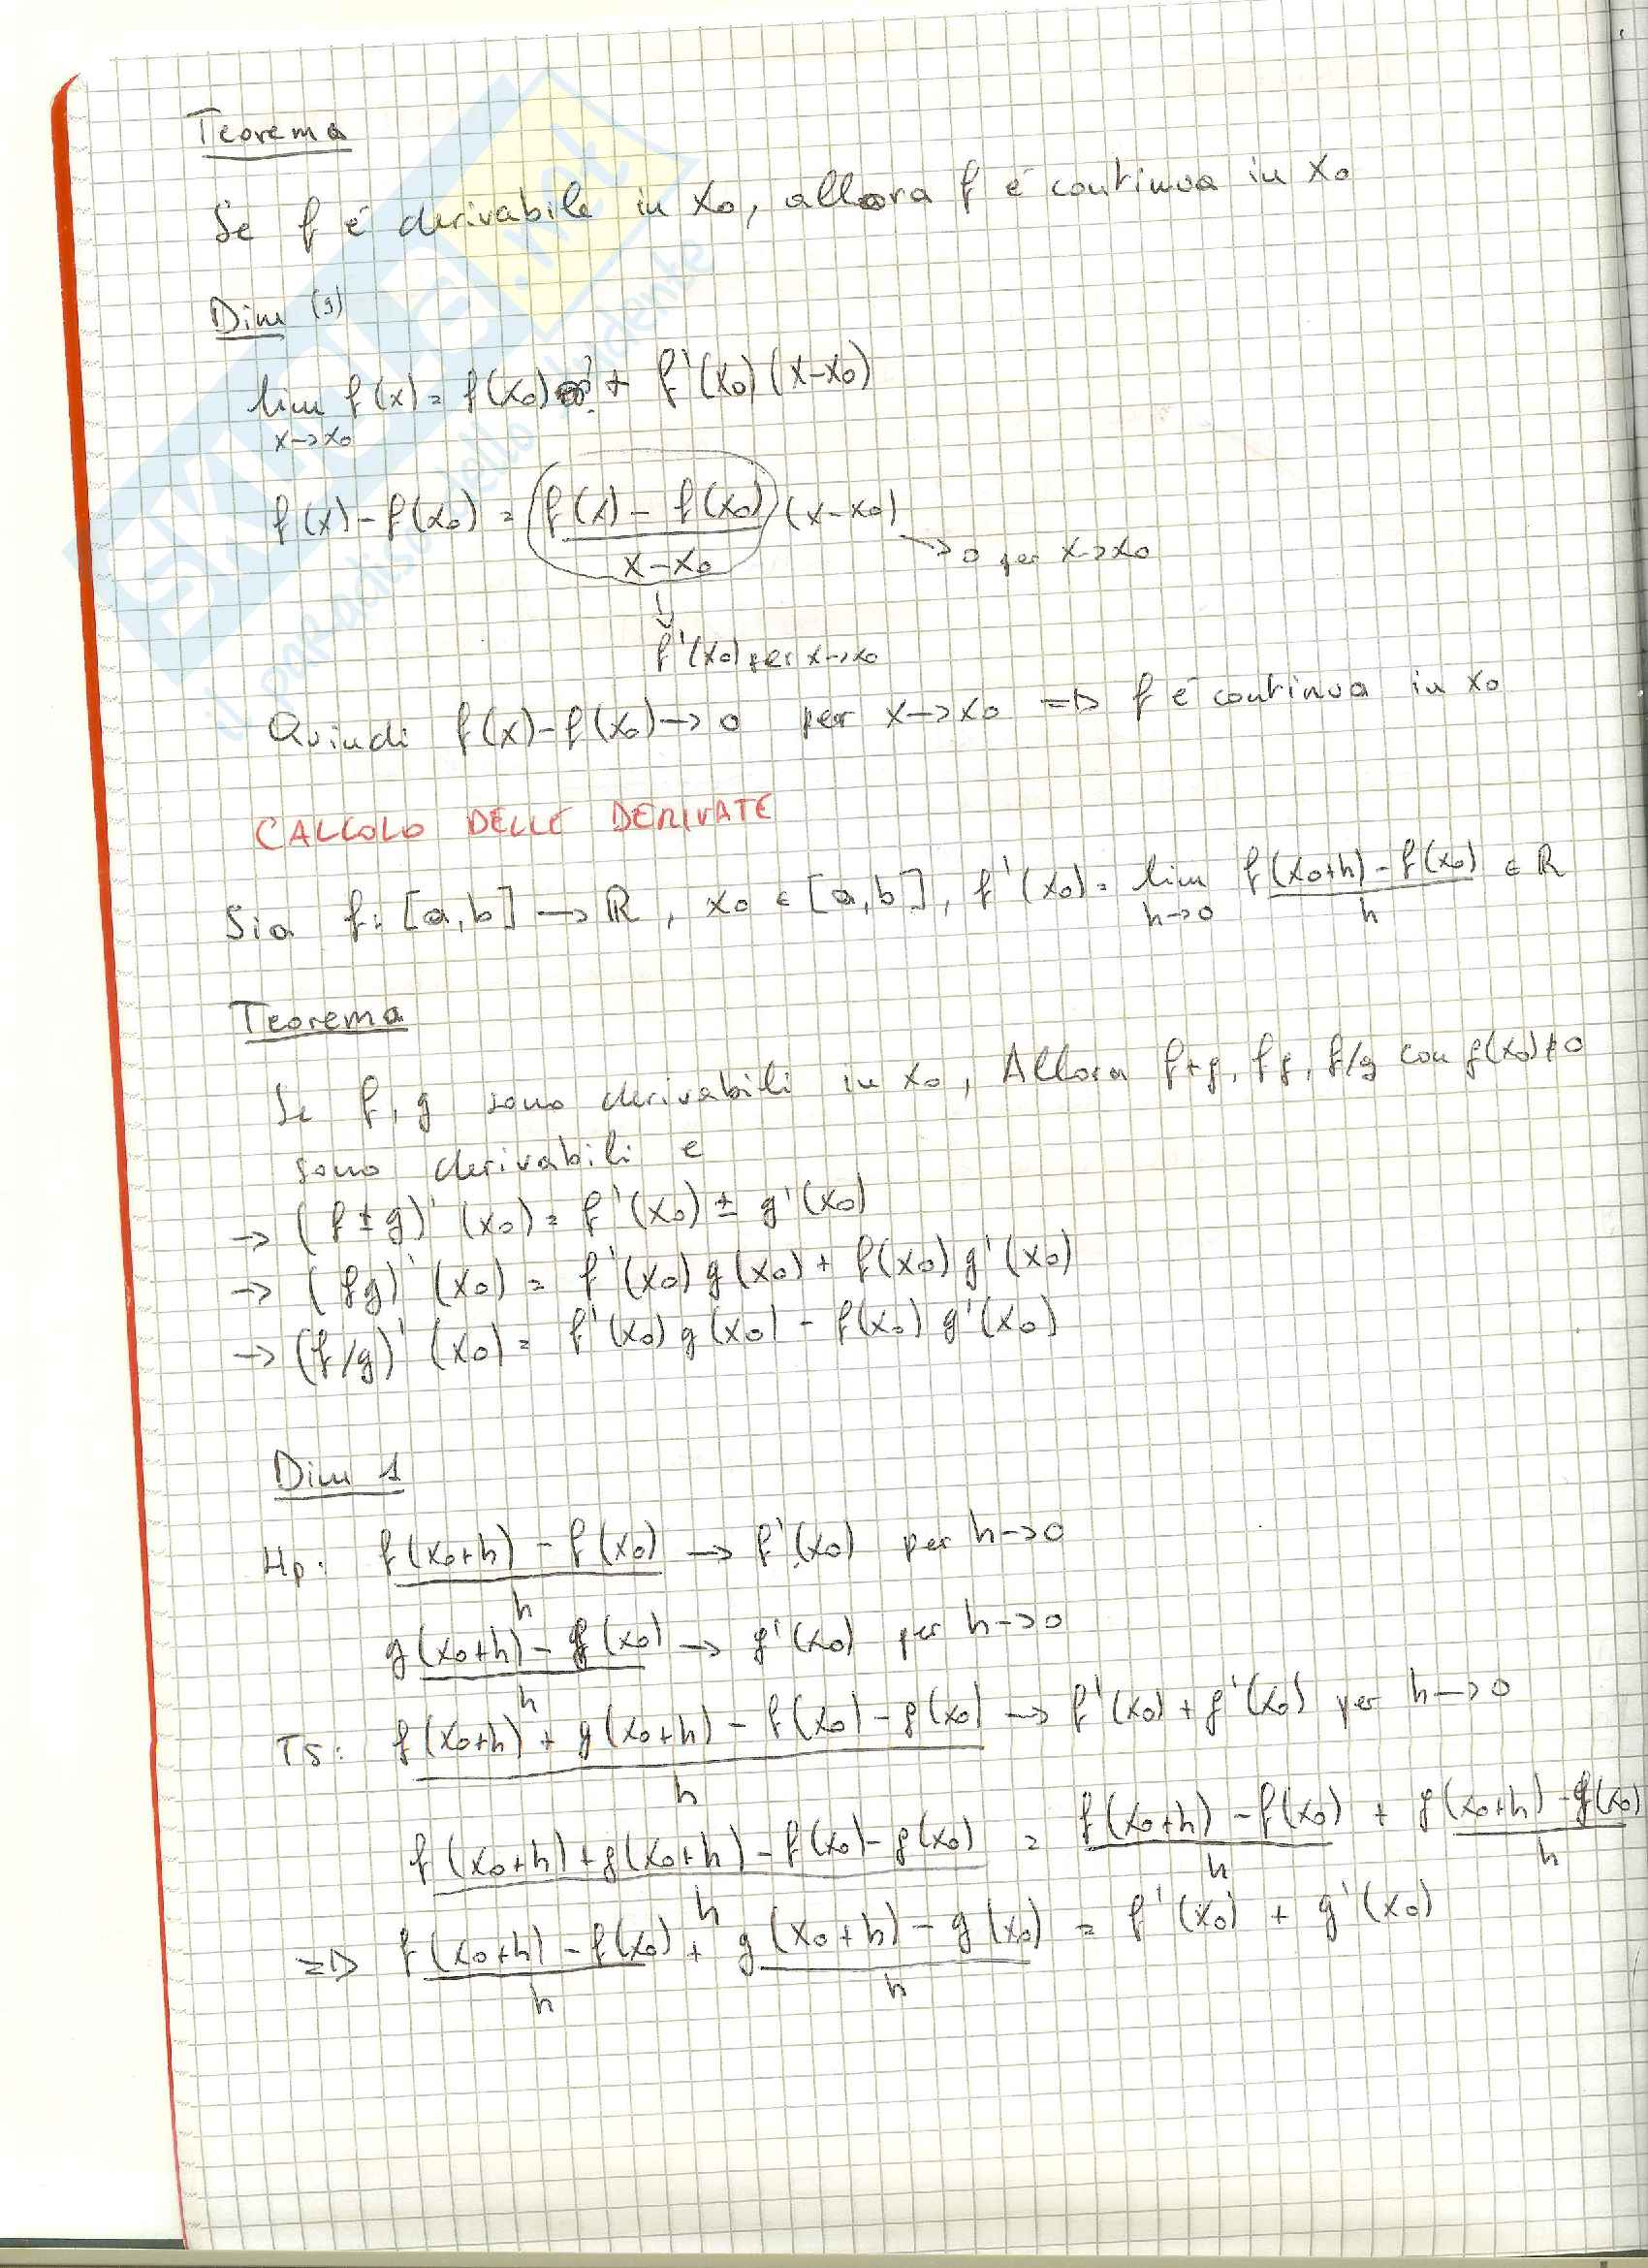 Teorema
Se f é derivabile in x₀, allora f é continua in x₀
Dim (9)
lim f(x) = f(x₀) + f'(x₀)(x-x₀)
x→x₀
f(x)-f(x₀) = (f(x)-f(x₀))/(x-x₀) (x-x₀) → 0 per x→x₀
↓
f'(x₀) per x→x₀
Quindi f(x)-f(x₀)→0 per x→x₀ => f é continua in x₀
CALCOLO DELLE DERIVATE
Sia f: [a,b] → ℝ, x₀ ∈ [a,b], f'(x₀) = lim h→0 (f(x₀+h)-f(x₀))/h ∈ ℝ
Teorema
Se f, g sono derivabili in x₀, Allora f+g, fg, f/g con g(x₀)≠0
sono derivabili e
→ (f±g)'(x₀) = f'(x₀) ± g'(x₀)
→ (fg)'(x₀) = f'(x₀)g(x₀) + f(x₀)g'(x₀)
→ (f/g)'(x₀) = f'(x₀)g(x₀) - f(x₀)g'(x₀)
Dim 1
Hp: (f(x₀+h)-f(x₀))/h → f'(x₀) per h→0
(g(x₀+h)-g(x₀))/h → g'(x₀) per h→0
TS: (f(x₀+h)+g(x₀+h)-f(x₀)-g(x₀))/h → f'(x₀)+g'(x₀) per h→0
(f(x₀+h)+g(x₀+h)-f(x₀)-g(x₀))/h = (f(x₀+h)-f(x₀))/h + (g(x₀+h)-g(x₀))/h
=> (f(x₀+h)-f(x₀))/h + (g(x₀+h)-g(x₀))/h = f'(x₀) + g'(x₀)